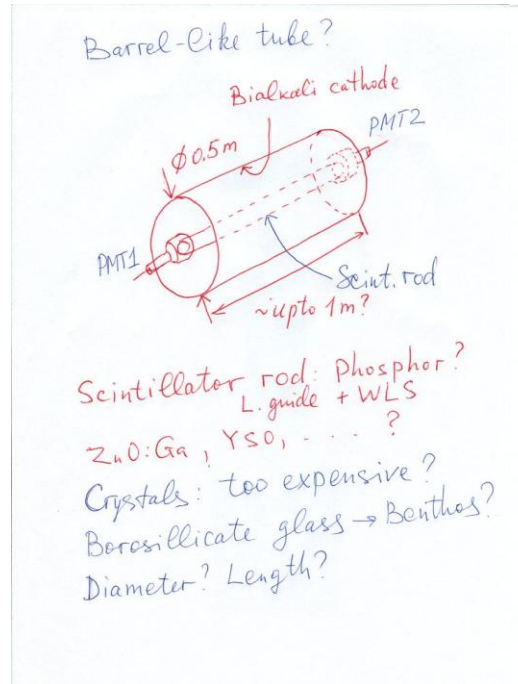 Barrel-like tube?
Bialkali cathode
PMT2
Ø0.5m
PMT1
Scint. rod
~ up to 1m?
Scintillator rod: Phosphor?
L. guide + WLS
ZnO:Ga, YSO, . . . . ?
Crystals: too expensive?
Borosillicate glass → Benthos?
Diameter? Length?